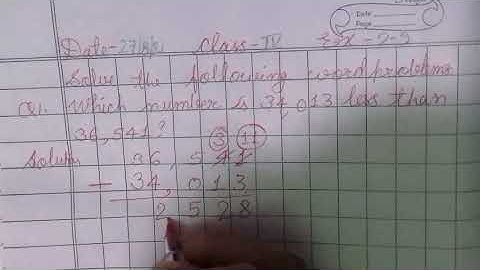 Date
Page
Date- Class-IV Ex-2.2
Solve the following word problems
Q1. Which number is 34,013 less than
36,541?
3 11
Solution 36,541
- 34,013
2528